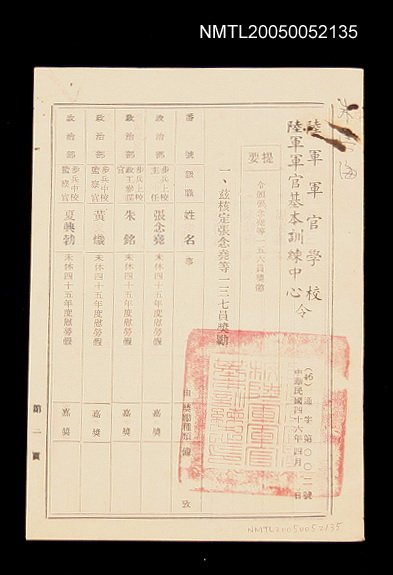 NMTL20050052135
朱
海
陸軍軍官學校
陸軍軍官基本訓練中心令
(46)通字第〇〇二號
中華民國四十六年四月 日
提要
令頒張念堯等一五六員獎懲
一、茲核定張念堯等一三七員獎勵
番號 級職 姓名 事由 獎懲種類 備攷
政治部 步兵上校主任 張念堯 未休四十五年度慰勞假 嘉獎
政治部 步兵上校政工參謀官 朱銘 未休四十五年度慰勞假 嘉獎
政治部 步兵中校監察官 黃熾 未休四十五年度慰勞假 嘉獎
政治部 步兵中校監察官 夏興勃 未休四十五年度慰勞假 嘉獎
第一頁
NMTL20050052135